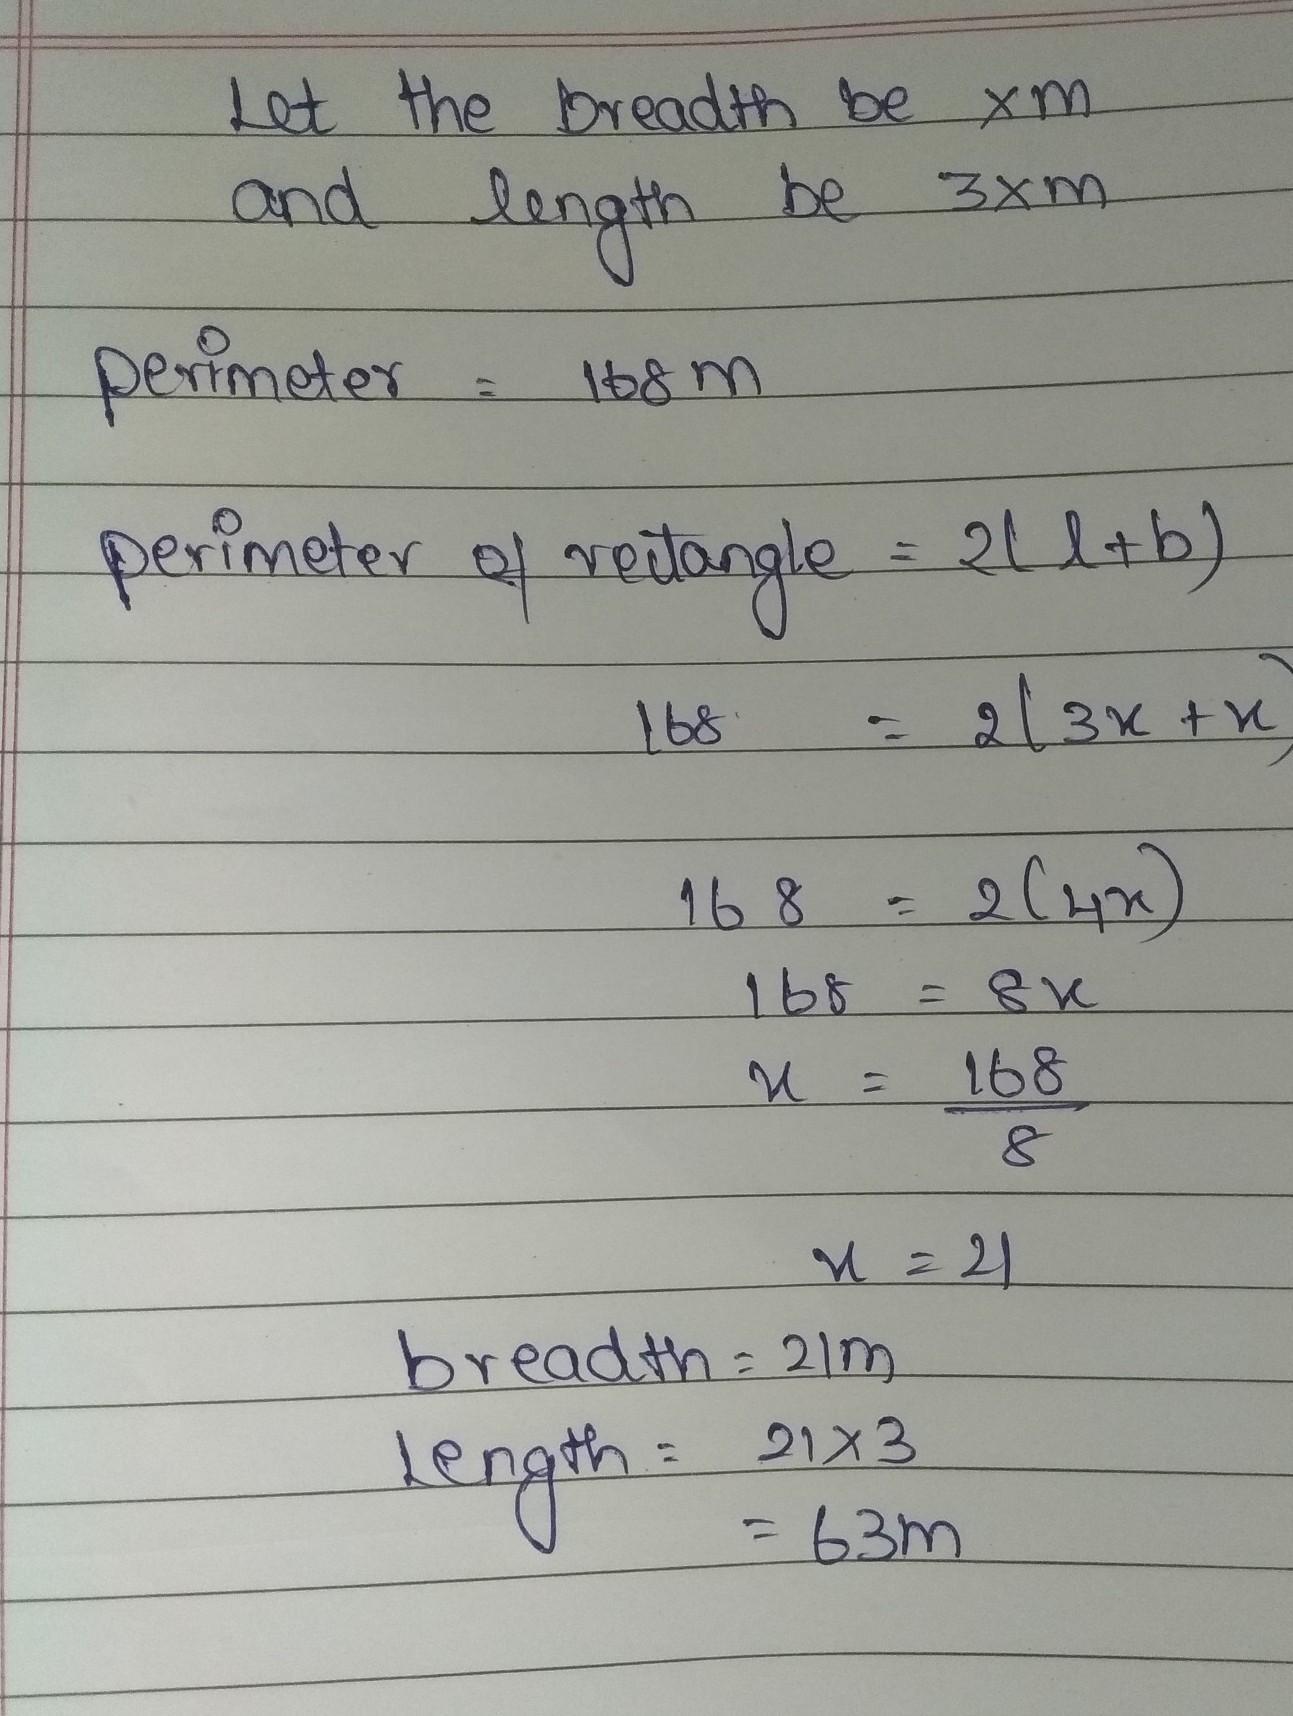 Let the breadth be xm
and length be 3xm
perimeter = 168 m
perimeter of rectangle = 2( l+b)
168 = 2(3x + x)
168 = 2(4x)
168 = 8x
x = 168
8
x = 21
breadth = 21m
Length = 21×3
= 63m